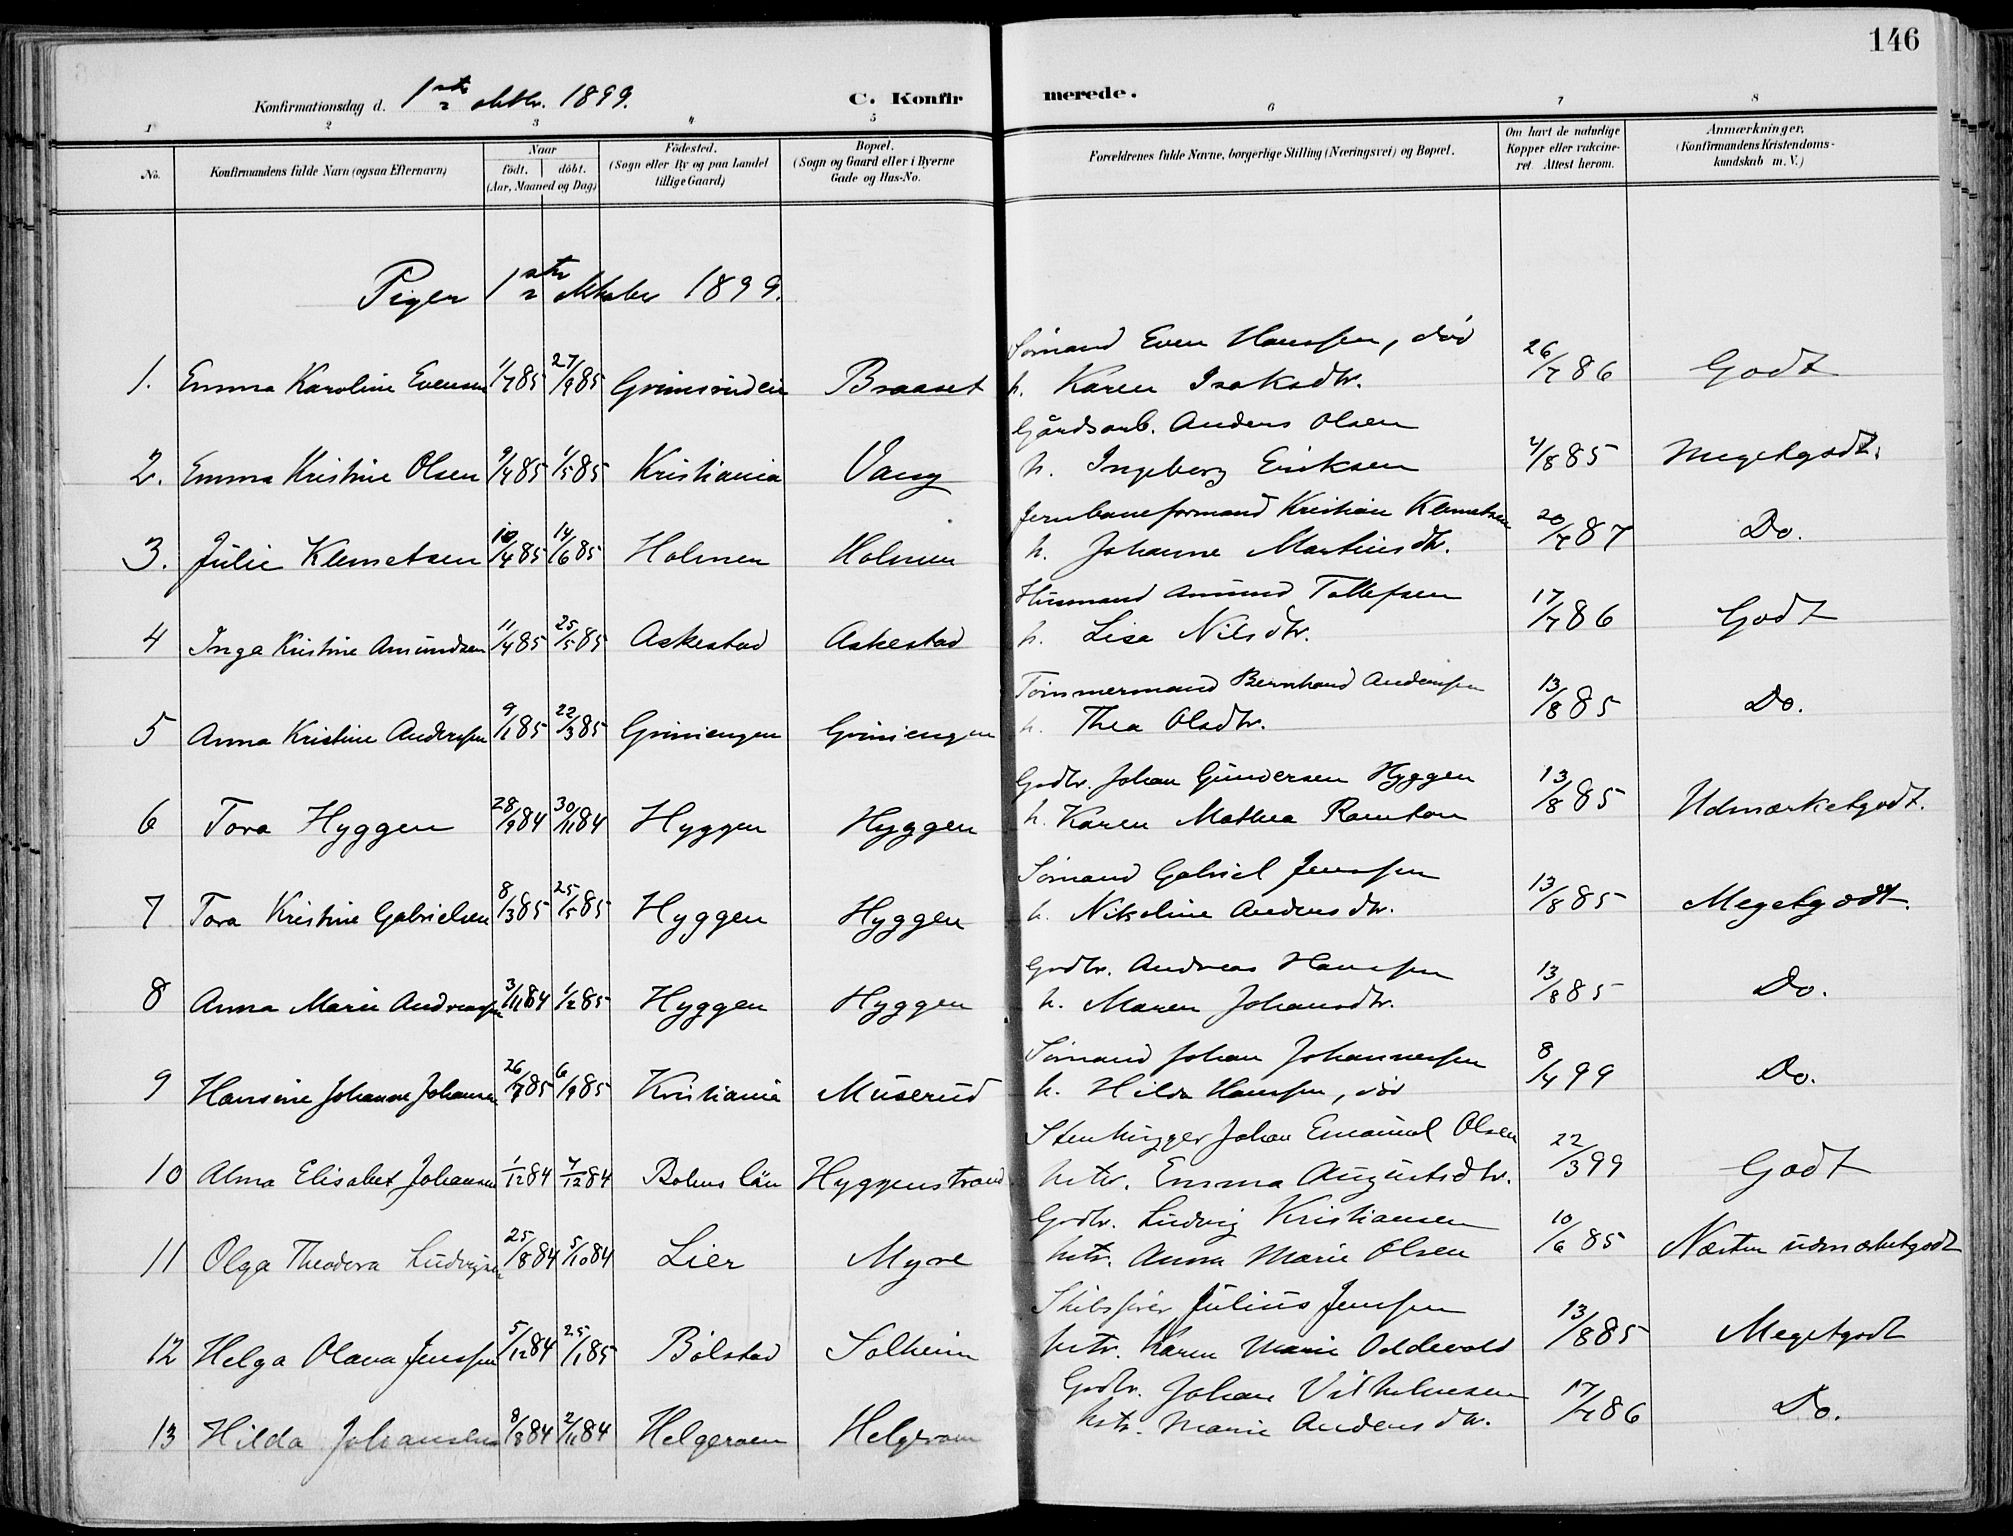 146
Konfirmationsdag d. 1ste oktbr. 1899.
C. Konfirmerede.
1 2 3 4 5 6 7 8
No. Konfirmandens fulde Navn (ogsaa Efternavn) Naar født. døbt. (Aar, Maaned og Dag) Fødested. (Sogn eller By og paa Landet tillige Gaard) Bopæl. (Sogn og Gaard eller i Byerne Gade og Hus-No. Forældrenes fulde Navne, borgerlige Stilling (Næringsvei) og Bopæl. Om havt de naturlige Kopper eller vakcineret. Attest herom. Anmærkninger, (Konfirmandens Kristendomskundskab m. V.)
Piger 1ste oktober 1899.
Sømand Even Hanssen, død
1. Emma Karoline Evensen 1/7 85 27/9 85 Grimsrudeie Braaset h. Karen Isaksdtr. 26/7 86 Godt
Gårdsarb. Anders Olsen
2. Emma Kristine Olsen 9/4 85 1/5 85 Kristiania Vang h. Ingeborg Eriksen 4/8 85 Megetgodt.
Jernbaneformand Kristian Klemetsen
3. Julie Klemetsen 10/4 85 14/6 85 Holmen Holmen h. Johanne Martinsdtr. 20/7 87 Do.
Husmand Amund Tollefsen
4 Inga Kristine Amundsen 11/4 85 25/5 85 Askestad Askestad h. Lise Nilsdtr. 17/7 86 Godt
Tømmermand Bernhard Anderssen
5 Anna Kristine Anderssen 9/1 85 22/3 85 Griniengen Griniengen h. Thea Olsdtr. 13/8 85 Do.
Grdbr. Johan Gundersen Hyggen
6 Tora Hyggen 28/9 84 30/11 84 Hyggen Hyggen h. Karen Mathea Ramton 13/8 85 Udmærketgodt.
Sømand Gabriel Jenssen
7 Tora Kristine Gabrielsen 8/3 85 25/5 85 Hyggen Hyggen h. Nikoline Andersdtr. 13/8 85 Megetgodt.
Grdbr. Andreas Hanssen
8 Anna Marie Andreassen 3/11 84 1/2 85 Hyggen Hyggen h. Maren Johansdtr. 13/8 85 Do.
Sømand Johan Johannessen
9 Hansine Johanne Johansen 26/7 85 6/9 85 Kristiania Muserud h. Hilda Hanssen, død 8/4 99 Do.
Stenhugger Johan Emanuel Olsen
10 Alma Elisabet Johansen 1/12 84 7/12 84 Bohus län Hyggenstrand hstr. Emma Augustsdtr. 22/3 99 Godt
Grdbr. Ludvig Kristiansen
11 Olga Theodora Ludvigsen 25/8 84 5/10 84 Lier Myre hstr. Anna Marie Olsen 10/6 85 Næsten udmærketgodt
Skibsfører Julius Jenssen
12 Helga Olava Jenssen 5/12 84 25/1 85 Bølstad Solheim hstr. Karen Marie Oddevold 13/8 85 Megetgodt
Grdbr. Johan Vilhelmsen
13 Hilda Johansen 8/8 84 2/11 84 Helgeraen Helgeraen hstr. Marie Andersdtr. 17/7 86 Do.